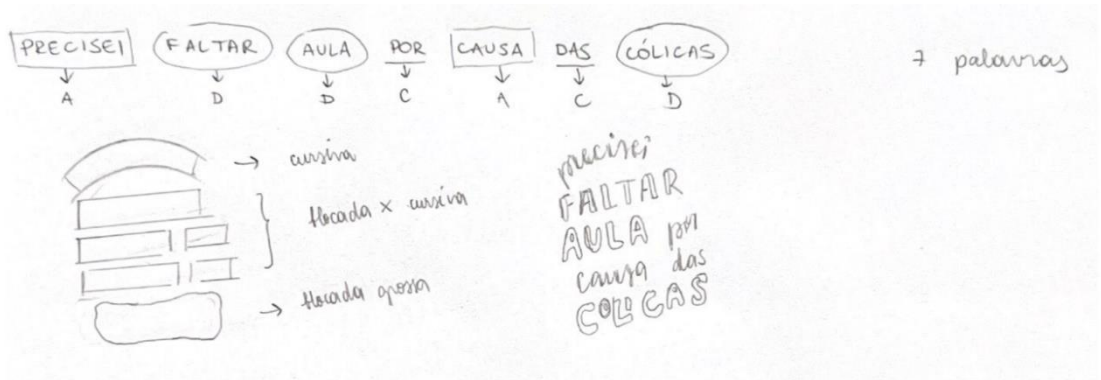 PRECISEI FALTAR AULA POR CAUSA DAS CÓLICAS
7 palavras
A D D C A C D
cursiva
blocada x cursiva
blocada grossa
precisei
FALTAR
AULA por
causa das
COLICAS